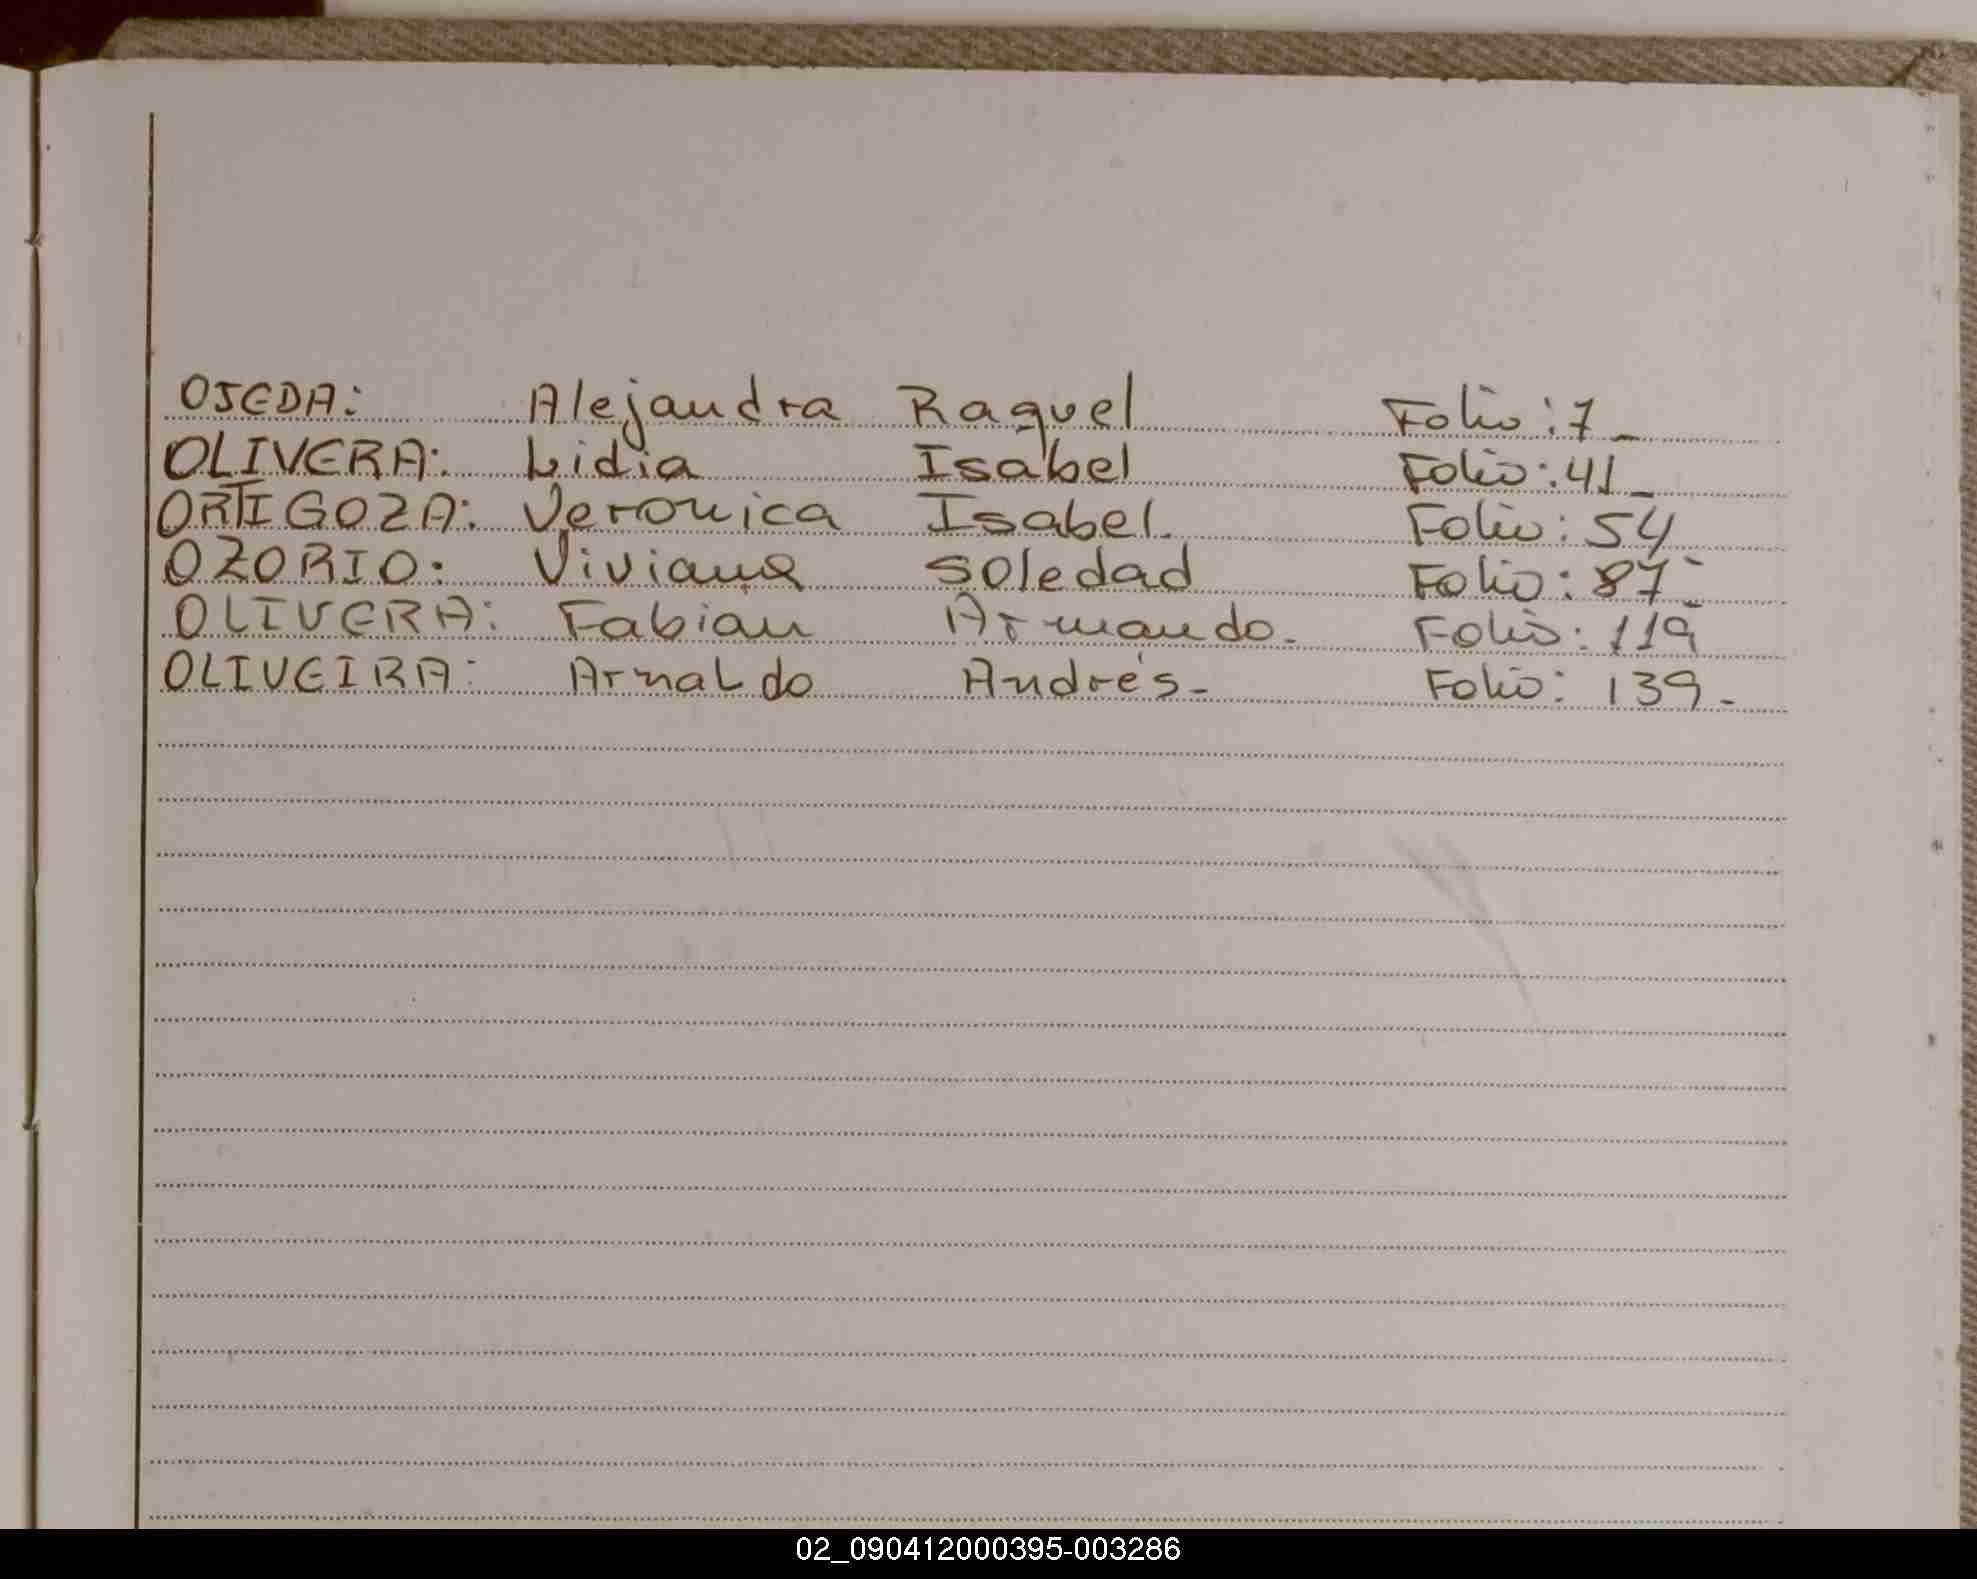 OJEDA: Alejandra Raquel Folio: 7_
OLIVERA: Lidia Isabel Folio: 41_
ORTIGOZA: Veronica Isabel. Folio: 54_
OZORIO: Viviana Soledad Folio: 87_
OLIVERA: Fabian Armando. Folio: 119
OLIVEIRA: Arnaldo Andrés. Folio: 139_
02_090412000395-003286